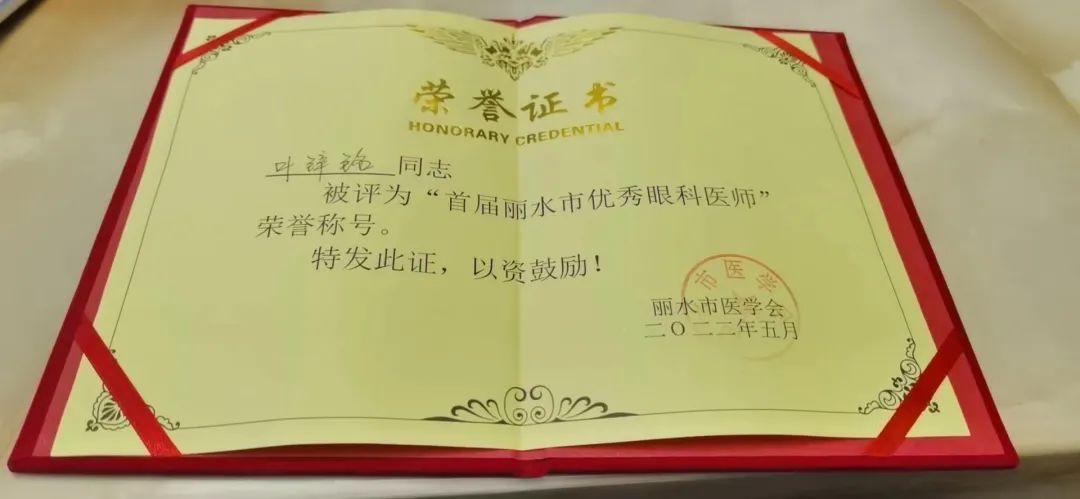 荣誉证书
HONORARY CREDENTIAL
叶 同志
被评为“首届丽水市优秀眼科医师”
荣誉称号。
特发此证，以资鼓励！
市医学
丽水市医学会
二〇二二年五月